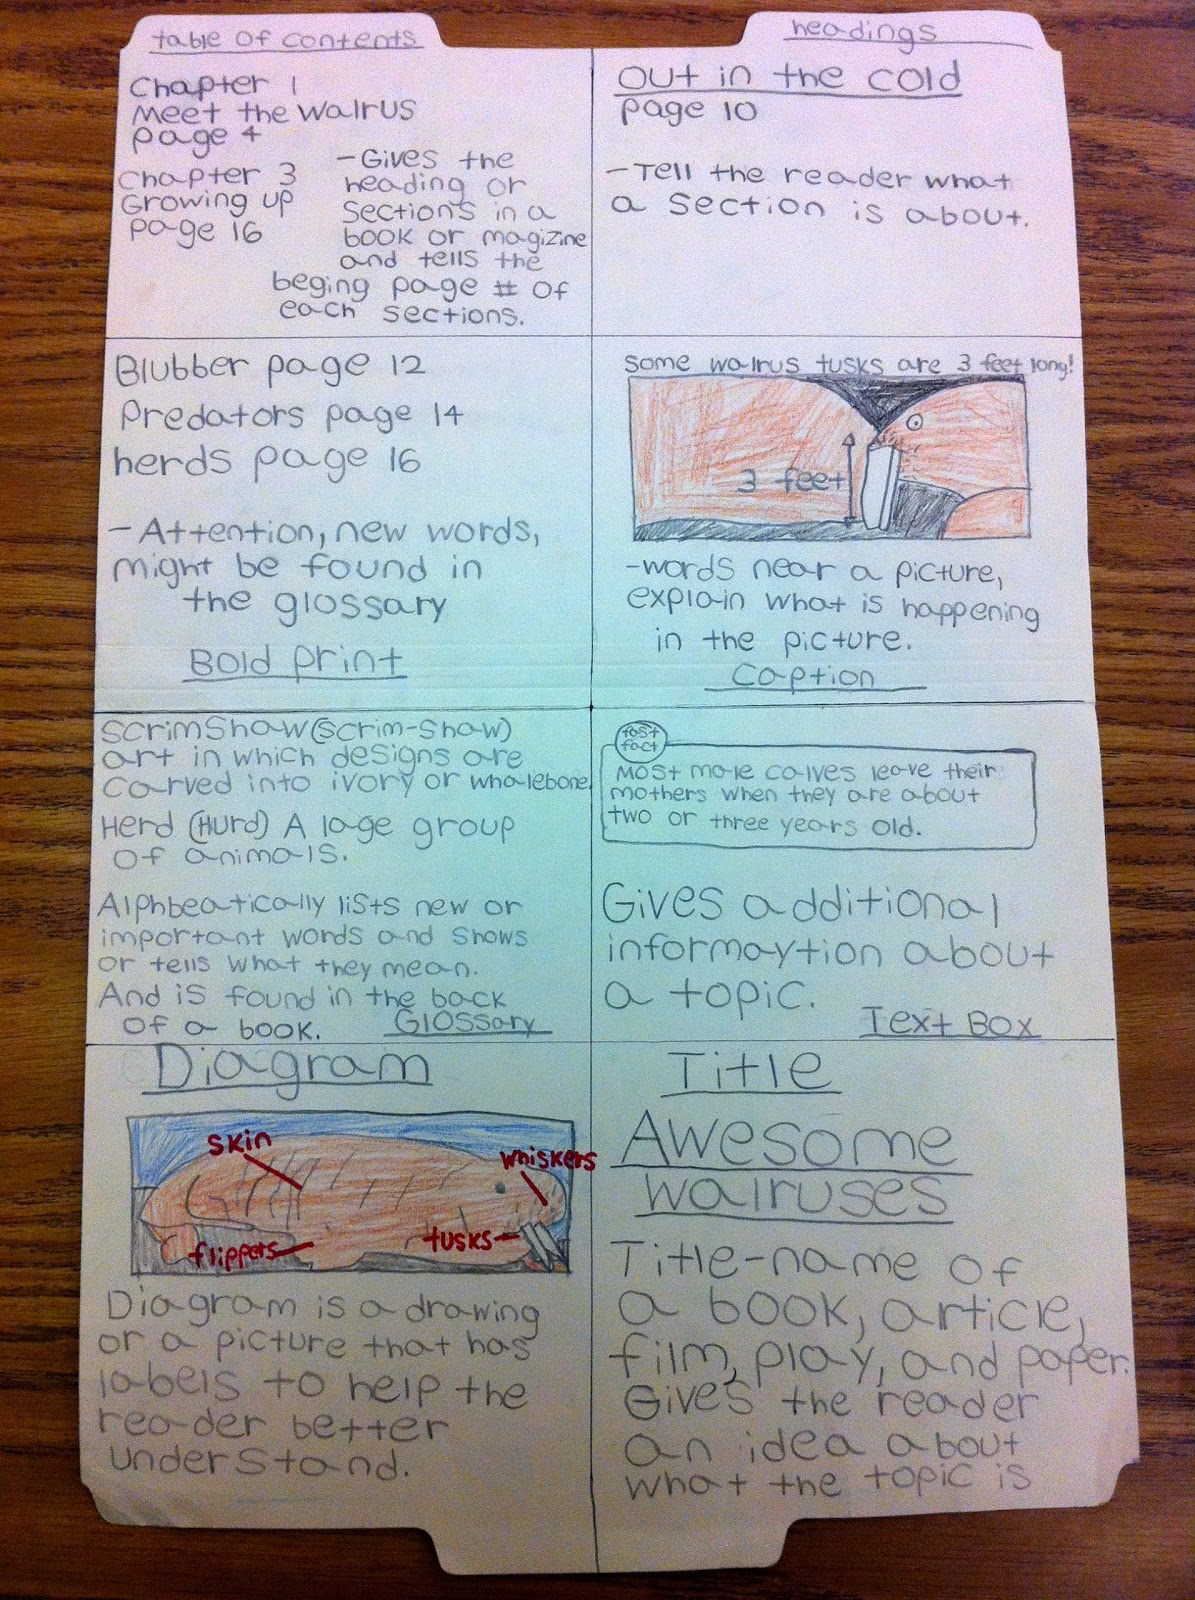 table of contents
Chapter 1
Meet the walrus
page 4
Chapter 3
Growing up
page 16
-Gives the
heading or
sections in a
book or magizine
and tells the
beging page # of
each sections.
headings
Out in the cold
page 10
-Tell the reader what
a section is about.
Blubber page 12
Predators page 14
herds page 16
-Attention, new words,
might be found in
the glossary
Bold print
Some walrus tusks are 3 feet long!
3 feet
-words near a picture,
explain what is happening
in the picture.
Caption
Scrimshaw (scrim-shaw)
art in which designs are
carved into ivory or whalebone
Herd (Hurd) A lage group
of animals.
Alphbeatically lists new or
important words and shows
or tells what they mean.
And is found in the back
of a book.
Glossary
fast
fact
Most male calves leave their
mothers when they are about
two or three years old.
Gives additional
informaytion about
a topic.
Text Box
Diagram
skin
whiskers
flippers
tusks
Diagram is a drawing
or a picture that has
labels to help the
reader better
understand.
Title
Awesome
walruses
Title-name of
a book, article,
film, play, and paper.
Gives the reader
an idea about
what the topic is